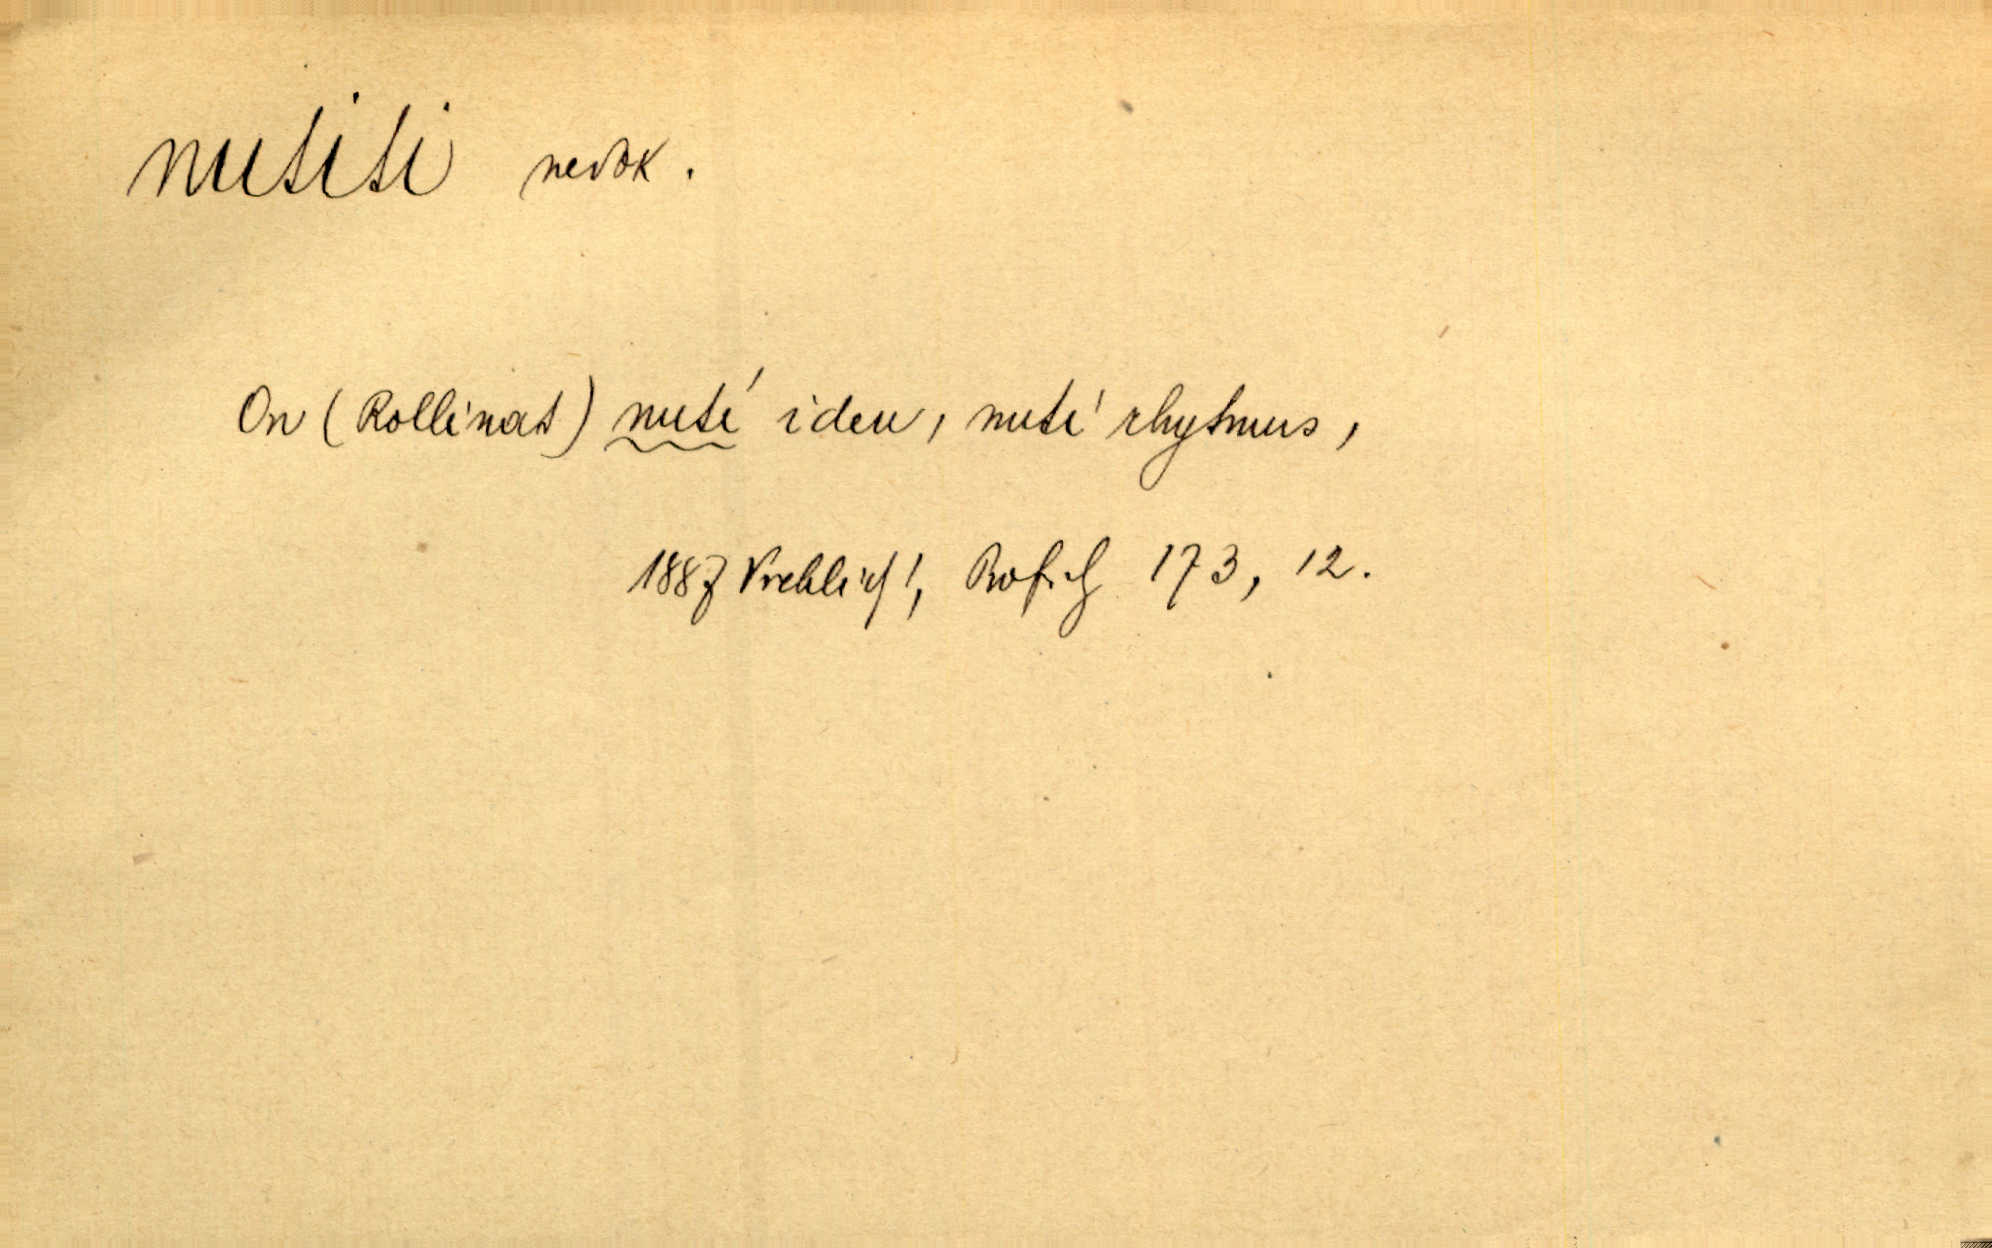 nutiti nedok.
On (Rollinat) nutí ideu, nutí rhytmus,
1887 Vrchlický, Prof. 173, 12.